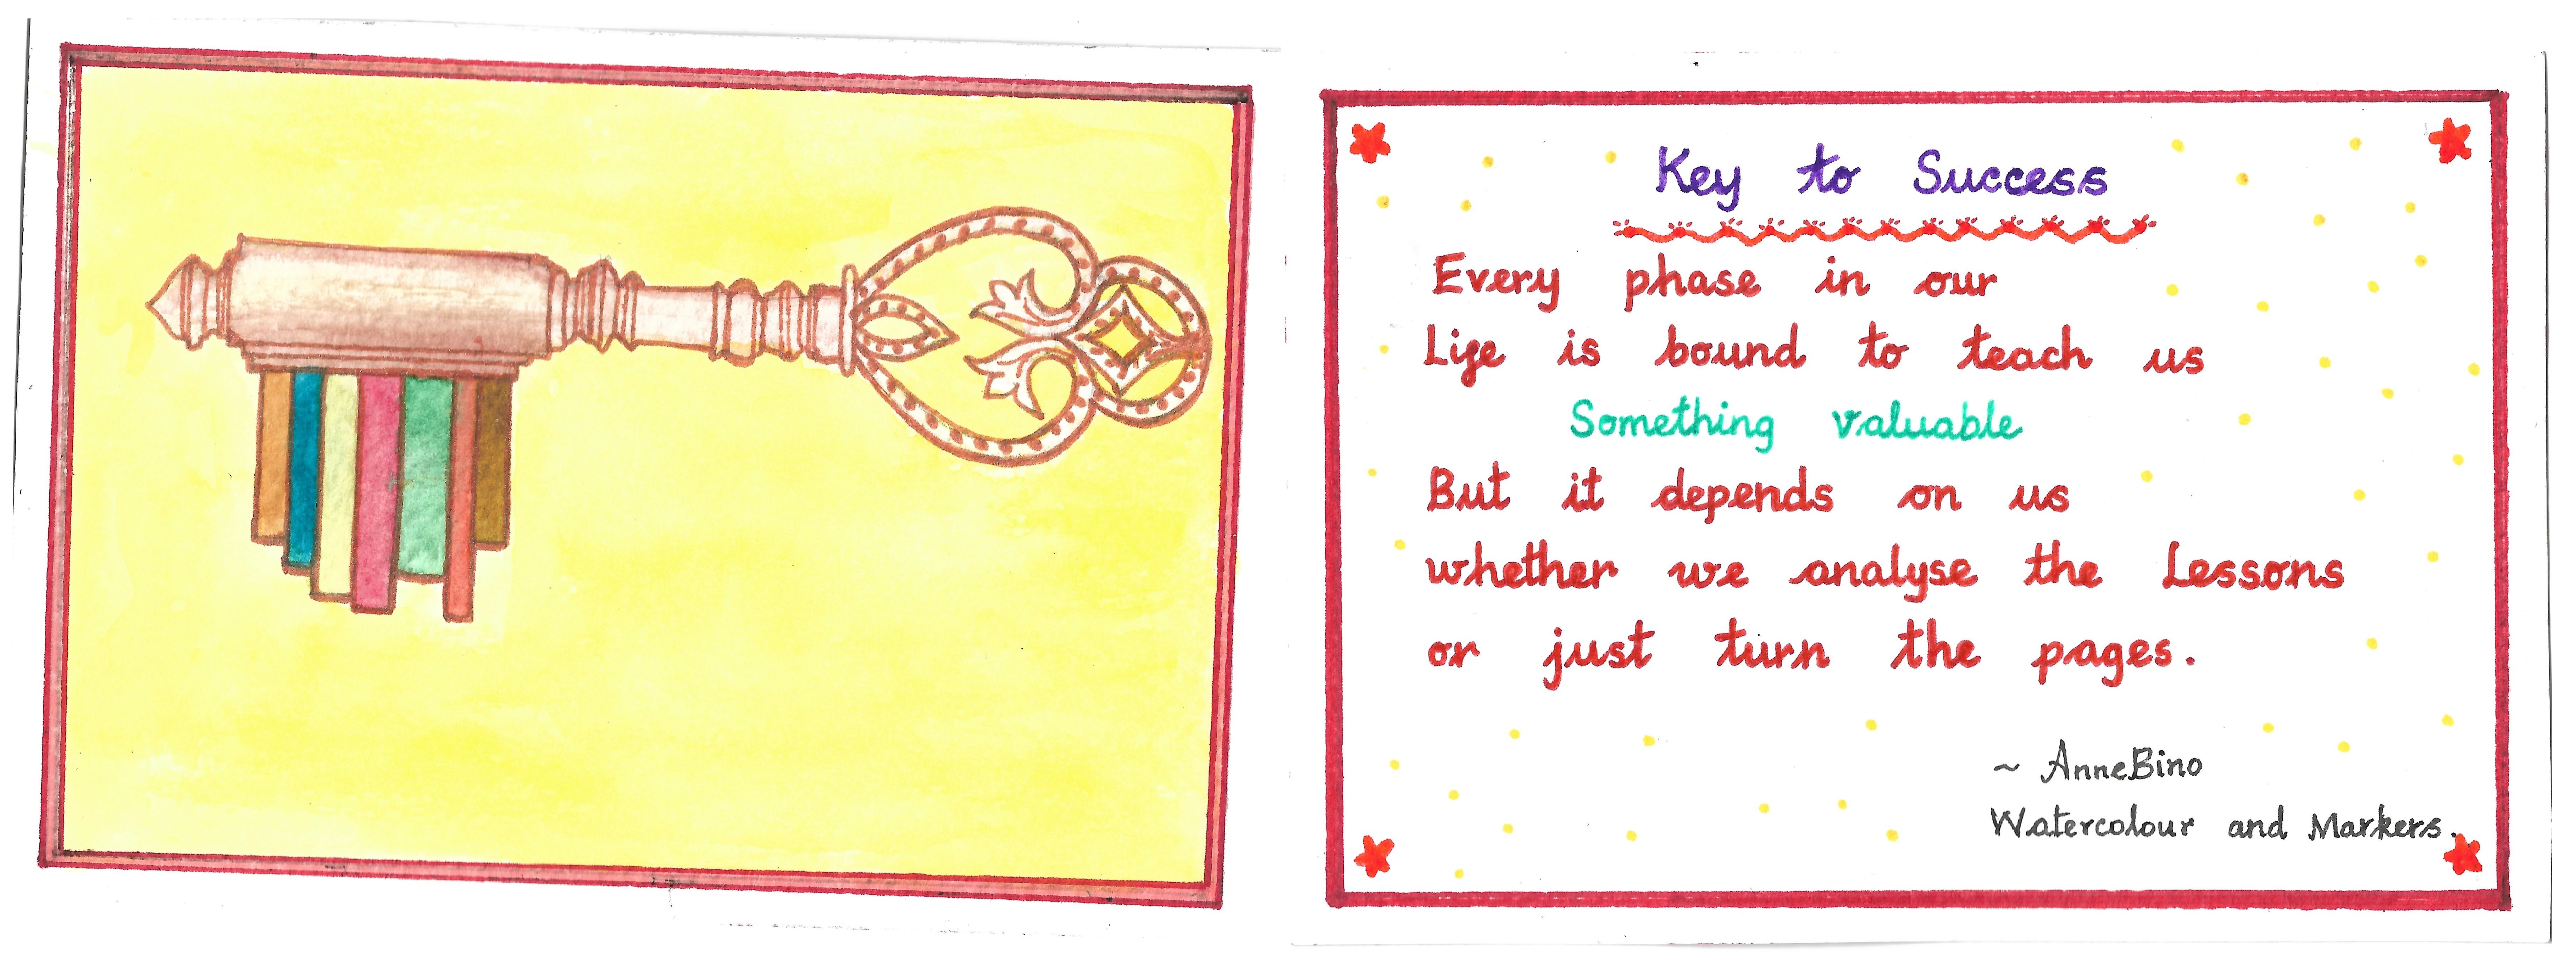 Key to Success
Every phase in our
Life is bound to teach us
Something valuable
But it depends on us
whether we analyse the Lessons
or just turn the pages.
~ AnneBino
Watercolour and Markers.